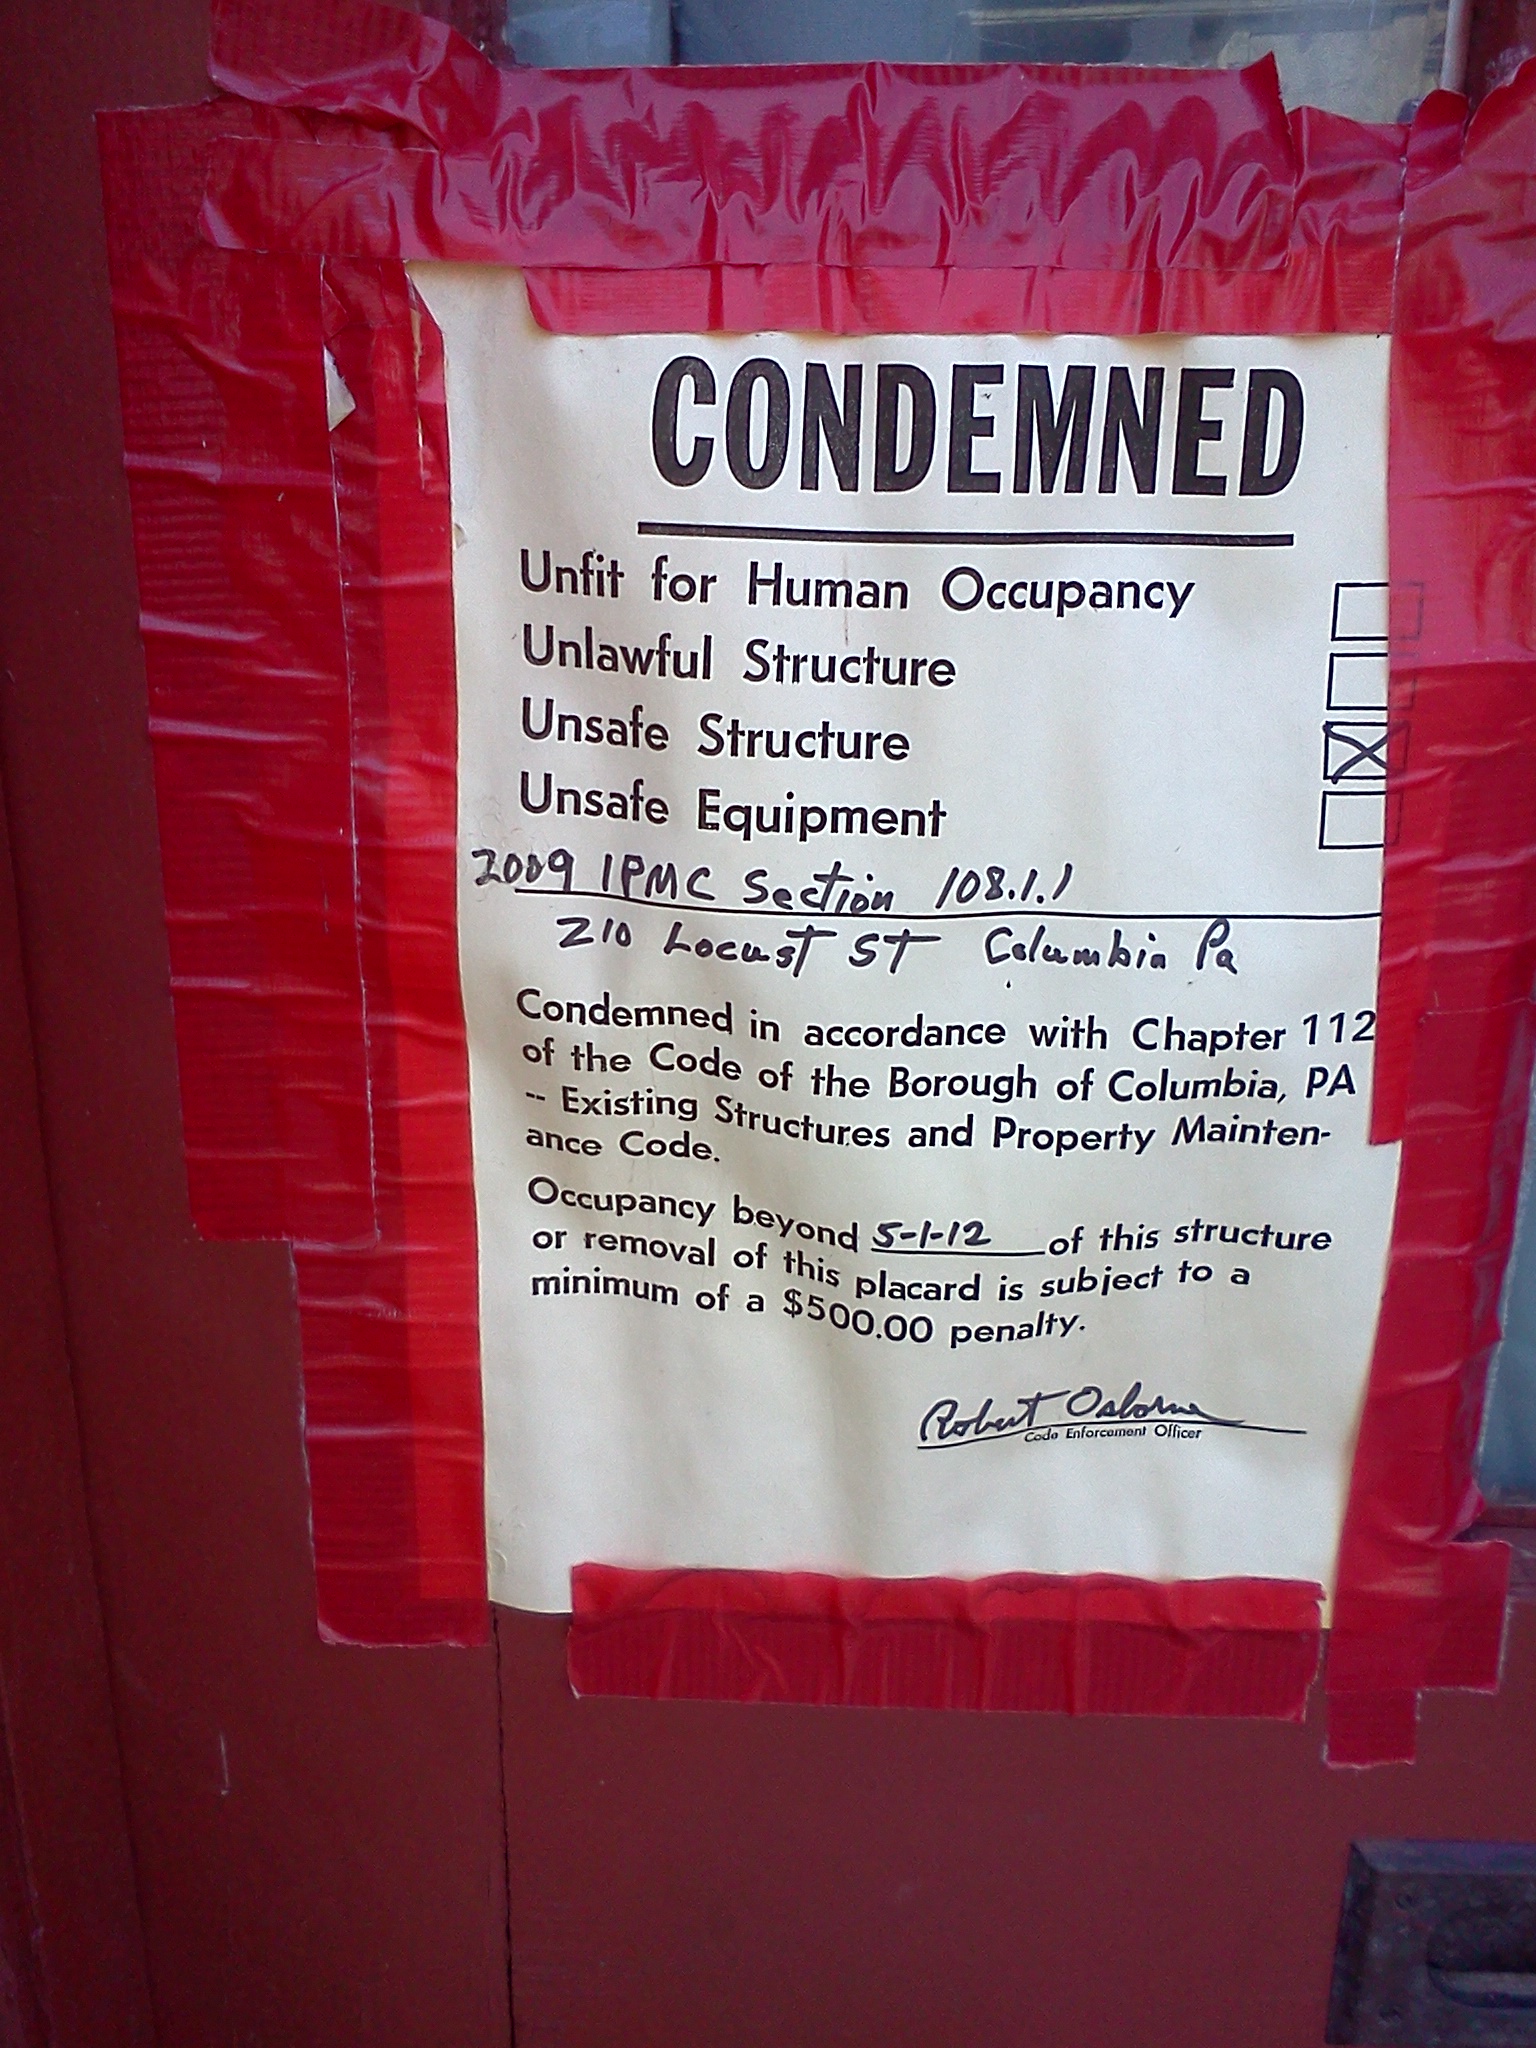 CONDEMNED
Unfit for Human Occupancy
Unlawful Structure
Unsafe Structure
Unsafe Equipment
2009 IPMC Section 108.1.1
210 Locust ST Columbia Pa
Condemned in accordance with Chapter 112
of the Code of the Borough of Columbia, PA
-- Existing Structures and Property Mainten-
ance Code.
Occupancy beyond 5-1-12 of this structure
or removal of this placard is subject to a
minimum of a $500.00 penalty.
Robert Osborne
Code Enforcement Officer